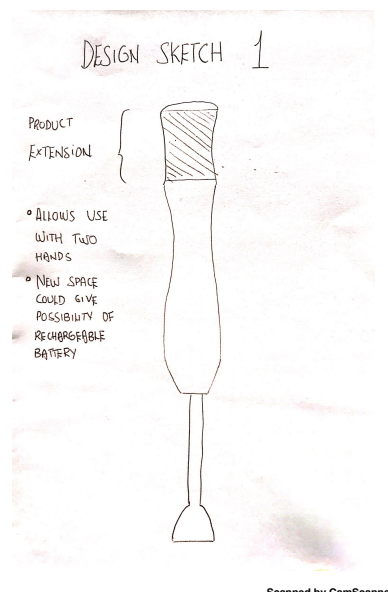 DESIGN SKETCH 1
PRODUCT
EXTENSION
° ALLOWS USE
WITH TWO
HANDS
° NEW SPACE
COULD GIVE
POSSIBILITY OF
RECHARGEABLE
BATTERY